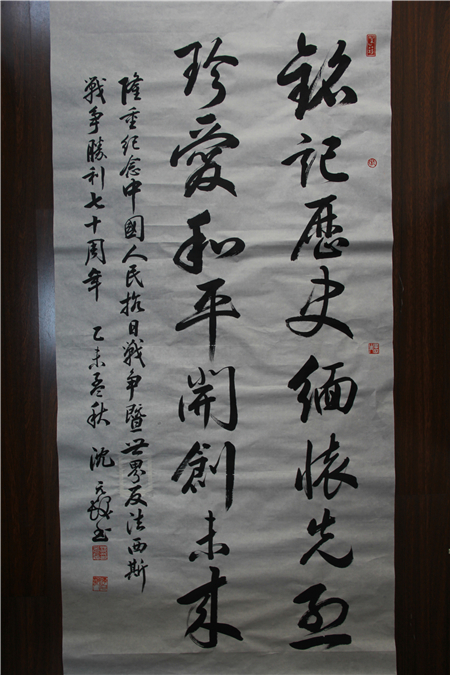 銘記歷史緬懷先烈
珍愛和平開創未来
隆重纪念中國人民抗日戰争暨世界反法西斯
戰争勝利七十周年 乙未孟秋 沈